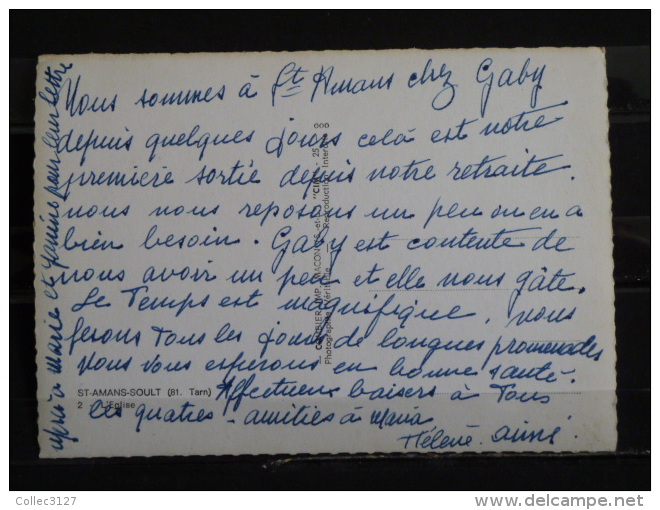 Nous sommes à St Amans chez Gaby
depuis quelques jours celà est notre
première sortié depuis notre retraite.
nous nous reposons un peu on en a
bien besoin. Gaby est contente de
nous avoir un peu et elle nous gâte.
Le Temps est magnifique, nous
fesons Tous les jours de longues promenades
Nous vous espérons en bonne santé.
Affectueux baisers à Tous
les quatres - amitiés à Maria
Hélène. Aimé.
à Marie et Janine pour leur lettre
ST-AMANS-SOULT (81. Tarn)
2 L'Eglise
C. COMBIER IMP. MACON "CIM" - 25
Photographie Véritable - Reproduction Interdite
Collec3127
© delcampe.net